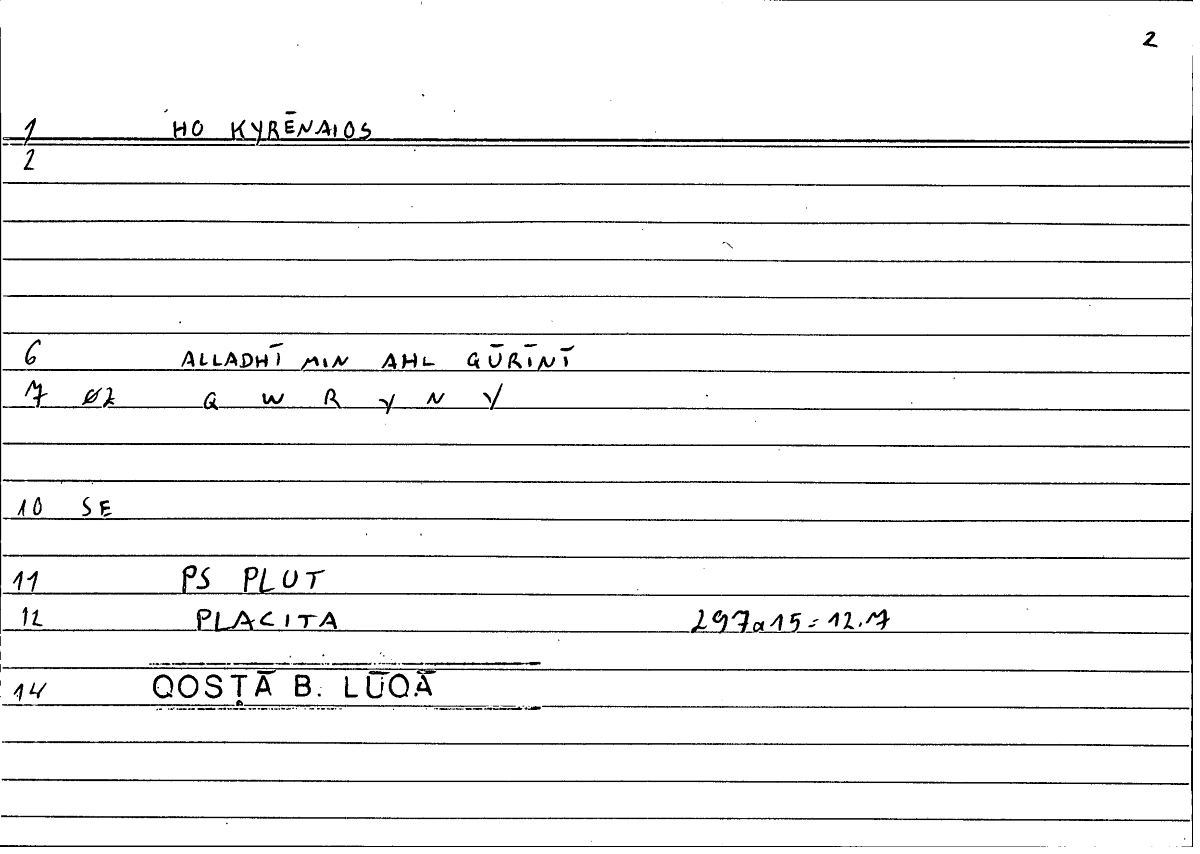 2
1 HO KYRĒNAIOS
2
6 ALLADHĪ MIN AHL QŪRĪNĪ
7 ØZ Q W R Y N Y
10 SE
11 PS PLUT
12 PLACITA 297a15=12.7
14 QOSṬĀ B. LŪQĀ